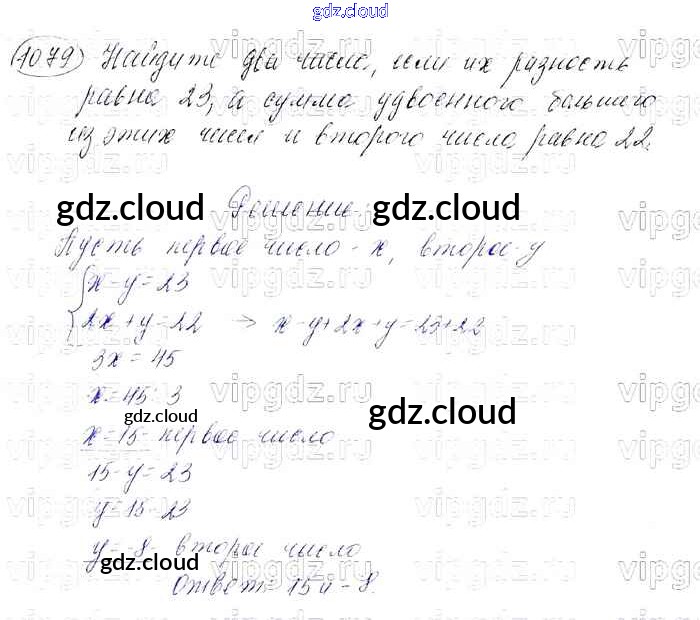 gdz.cloud
1079) Найдите два числа, если их разность
равна 23, а сумма удвоенного большего
из этих чисел и второго числа равна 22.
gdz.cloud Решение. gdz.cloud
Пусть первое число - x, второе - y
x - y = 23
2x + y = 22 → x - y + 2x + y = 23 + 22
3x = 45
x = 45 : 3
gdz.cloud gdz.cloud
x = 15 - первое число
15 - y = 23
y = 15 - 23
y = -8 - второе число
gdz.cloud
Ответ: 15 и -8.
gdz.cloud